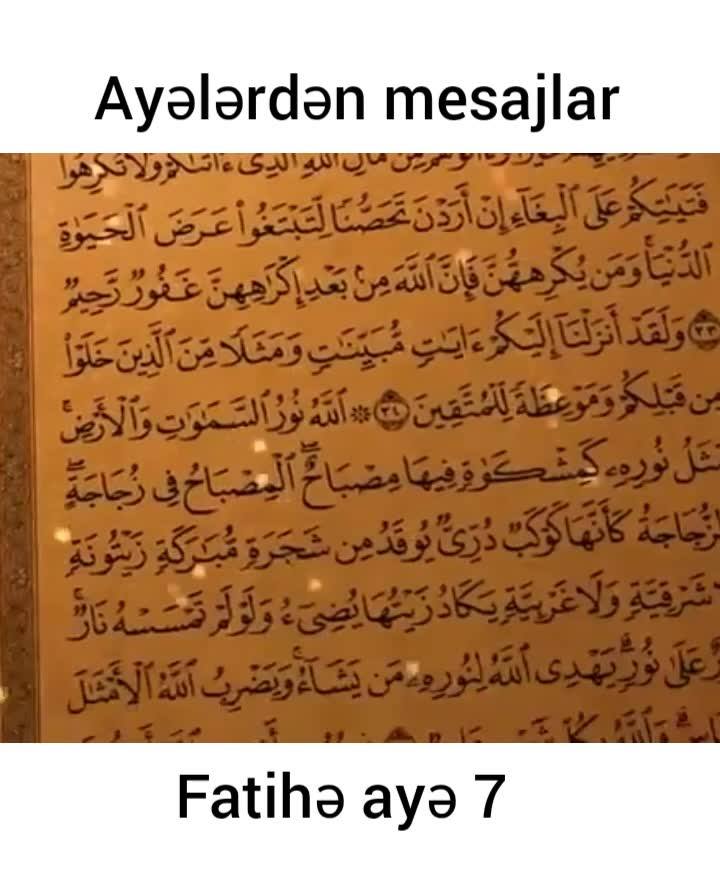 Ayələrdən mesajlar
مِّن مَّالِ ٱللَّهِ ٱلَّذِىٓ ءَاتَىٰكُمْ وَلَا تُكْرِهُوا۟
فَتَيَـٰتِكُمْ عَلَى ٱلْبِغَآءِ إِنْ أَرَدْنَ تَحَصُّنًا لِّتَبْتَغُوا۟ عَرَضَ ٱلْحَيَوٰةِ
ٱلدُّنْيَا وَمَن يُكْرِههُّنَّ فَإِنَّ ٱللَّهَ مِنۢ بَعْدِ إِكْرَٰهِهِنَّ غَفُورٌ رَّحِيمٌ
٣٣ وَلَقَدْ أَنزَلْنَآ إِلَيْكُمْ ءَايَـٰتٍ مُّبَيِّنَـٰتٍ وَمَثَلًا مِّنَ ٱلَّذِينَ خَلَوْا۟
مِن قَبْلِكُمْ وَمَوْعِظَةً لِّلْمُتَّقِينَ ٣٤ ۞ ٱللَّهُ نُورُ ٱلسَّمَـٰوَٰتِ وَٱلْأَرْضِ ۚ
مَثَلُ نُورِهِۦ كَمِشْكَوٰةٍ فِيهَا مِصْبَاحٌ ۖ ٱلْمِصْبَاحُ فِى زُجَاجَةٍ ۖ
ٱلزُّجَاجَةُ كَأَنَّهَا كَوْكَبٌ دُرِّىٌّ يُوقَدُ مِن شَجَرَةٍ مُّبَـٰرَكَةٍ زَيْتُونَةٍ
شَرْقِيَّةٍ وَلَا غَرْبِيَّةٍ يَكَادُ زَيْتُهَا يُضِىٓءُ وَلَوْ لَمْ تَمْسَسْهُ نَارٌ ۚ
عَلَىٰ نُورٍ ۗ يَهْدِى ٱللَّهُ لِنُورِهِۦ مَن يَشَآءُ ۚ وَيَضْرِبُ ٱللَّهُ ٱلْأَمْثَـٰلَ
Fatihə ayə 7